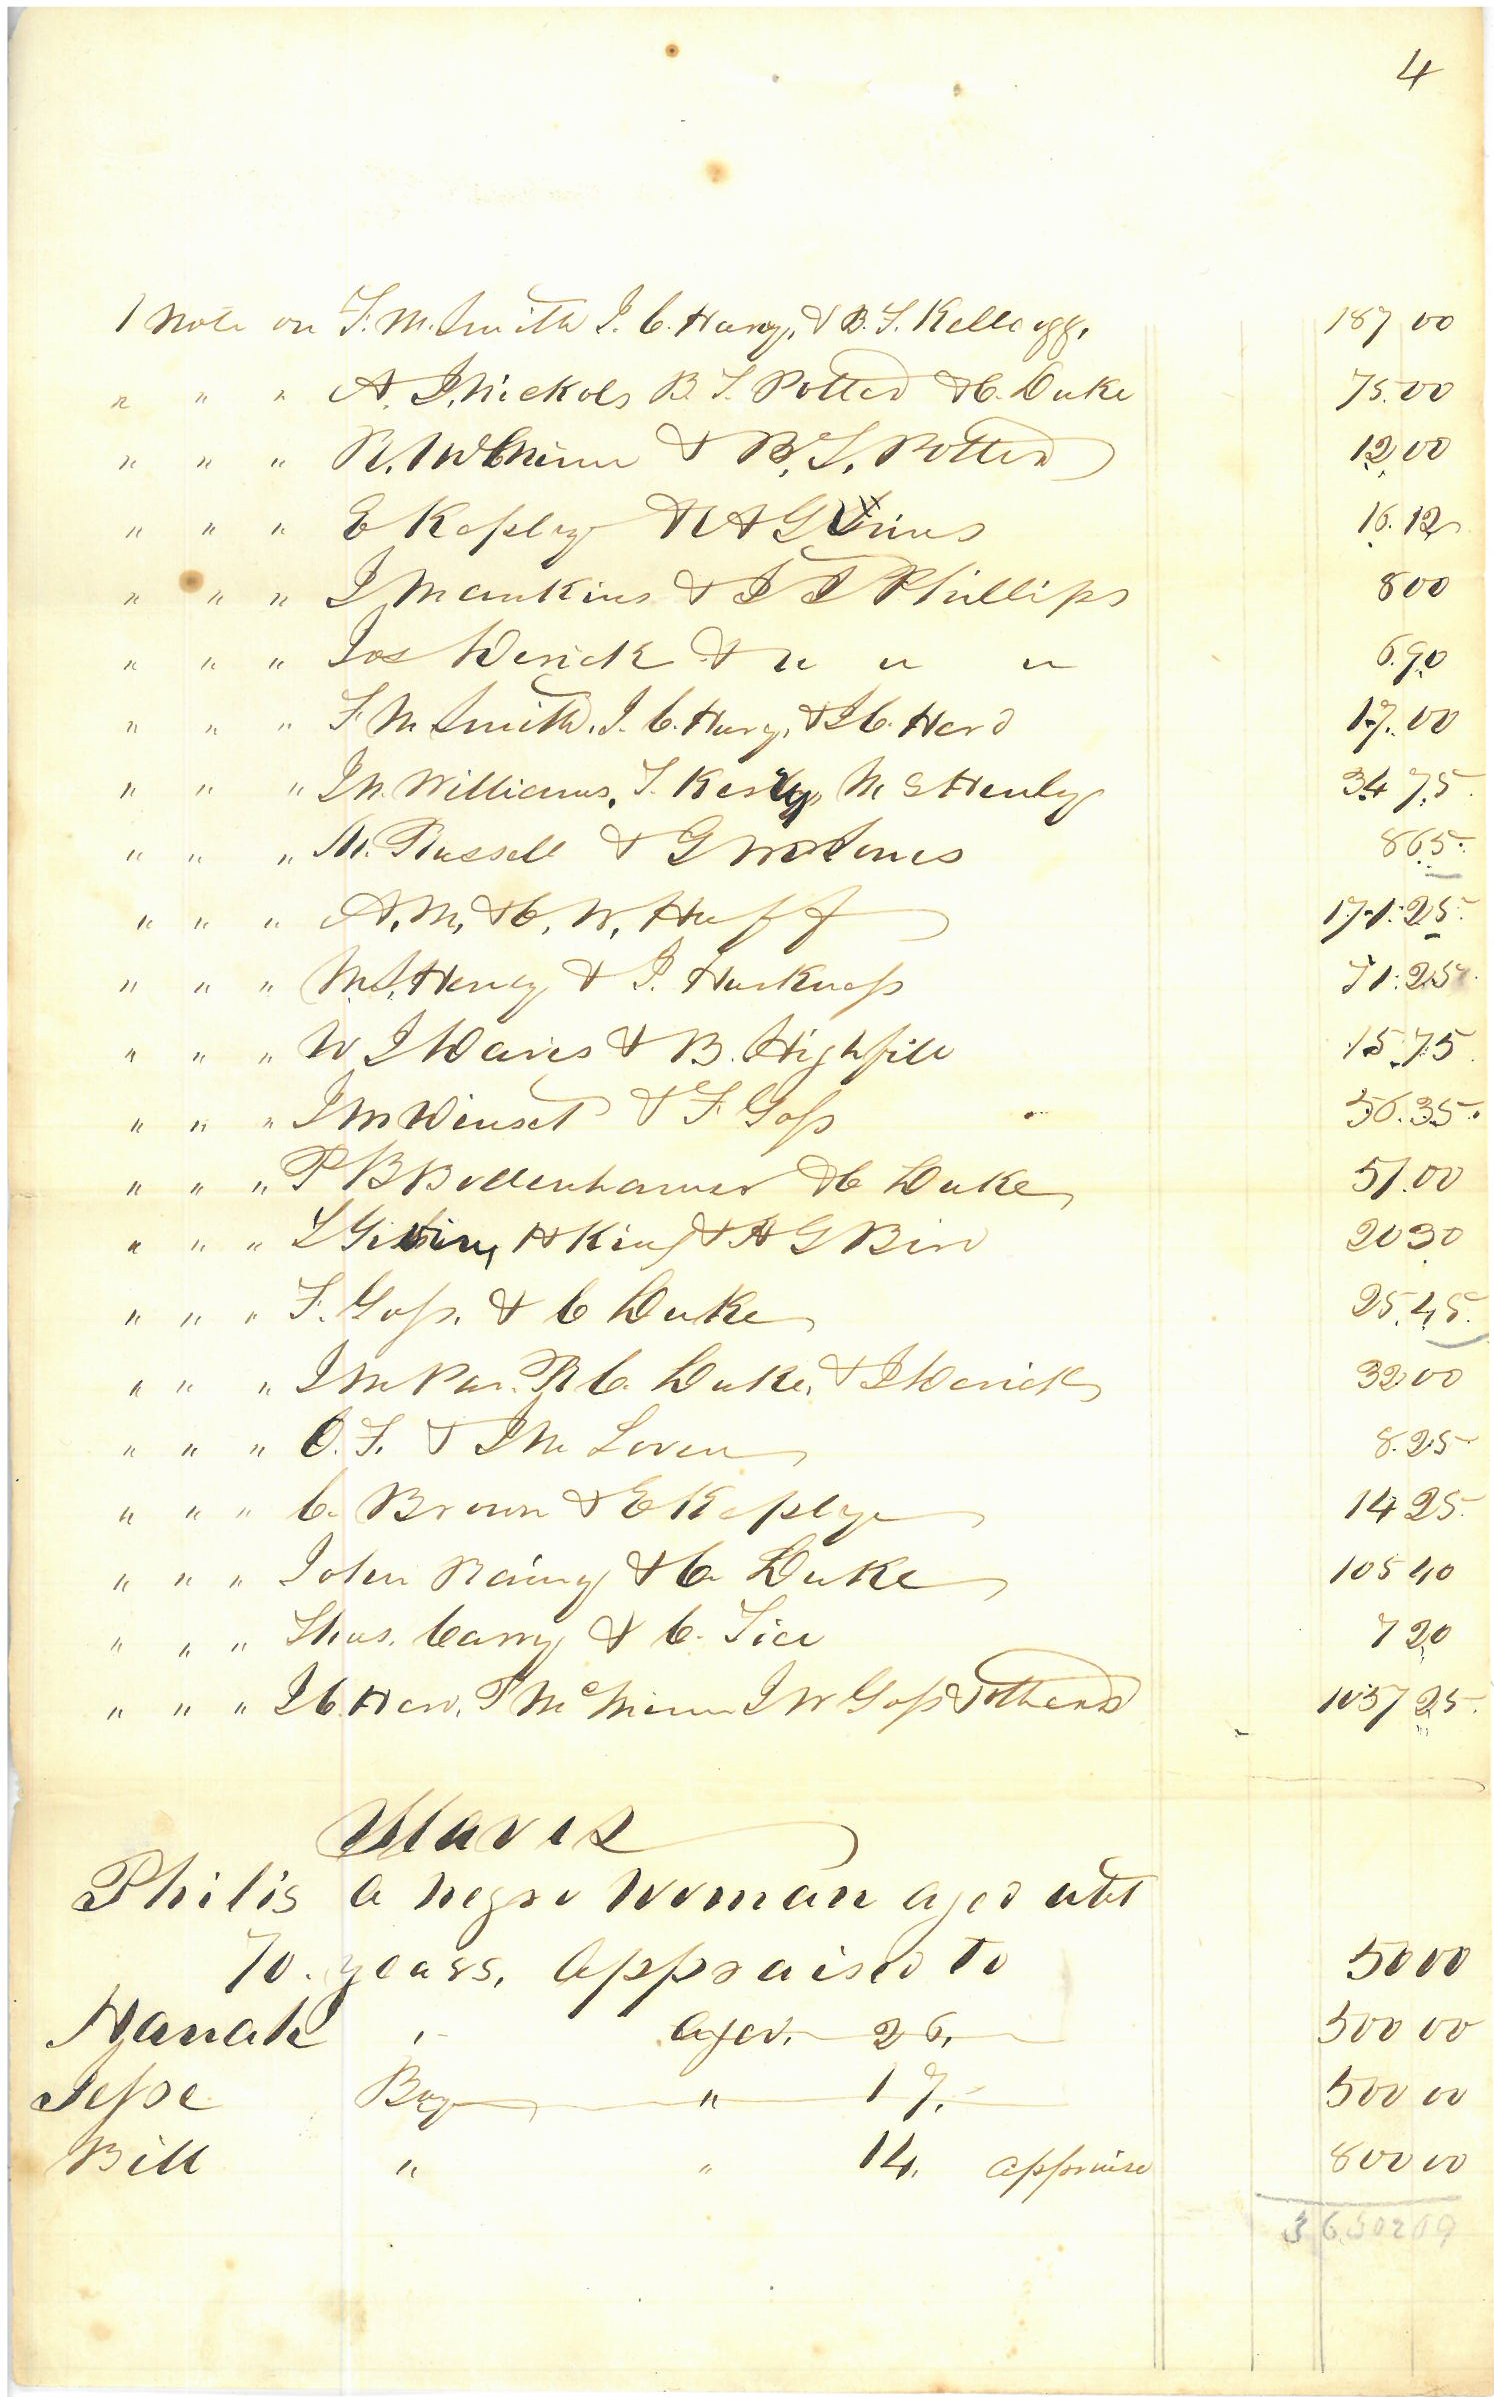 4
1 Note on F. M. Smith J. C. Harg, & B. F. Kellogg, 187 00
" " " A. J. Nickols B. F. Potter & C. Duke 75.00
" " " R. & B. F. Potter 12 00
" " " E Kepley & A G 16.12
" " " J Mankins & J J Phillips 8 00
" " " Jos Derick & " " " 6.90
" " " F. M Smith, J. C. Harg, & J C. Herd 17.00
" " " J N. Williams, J. M S Henly 34 75
" " " M. Russell & G W Jones 8 65
" " " A. M, & C. W. Huff 171.25
" " " M. S. Henly & J. Harkness 71.25
" " " W J Davis & B. Highfill 15.75
" " " J M Winset & F. Goss 56.35
" " " P B Bodenhamer & C Duke 51.00
" " " L H King & A G Bird 20 30
" " " F. Goss. & C Duke 25.45
" " " J M R C. Duke, & J Derick 32 00
" " " O. F. & J M Loven 8.25
" " " C. Brown & E Kepley 14 25
" " " John Rainy & C. Duke 105 40
" " " Thos. Carry & C. Tice 7 20
" " " J C Herd, P McMinn J W Goss & others 1037 25
Slaves
Philis a negro Woman aged abt
70. years, appraised to 50 00
Hanah " aged. 26. 500 00
Jesse Boy " 17. 500 00
Bill " " 14. appraised 800 00
3650209